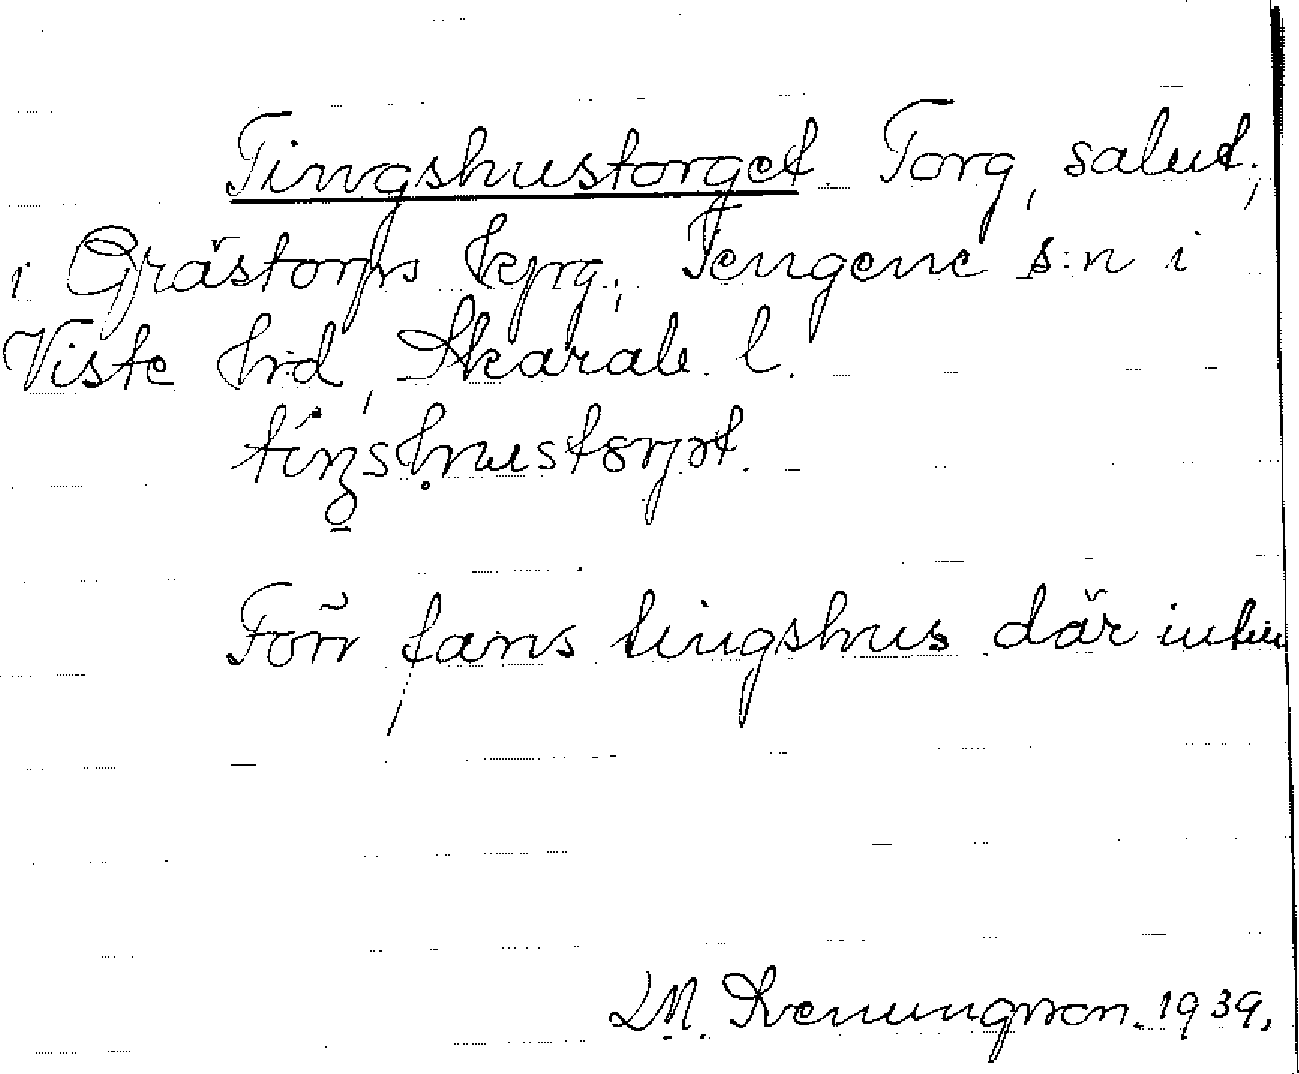 Tingshustorget. Torg, salut.,
i Grästorps kpg., Tengene s:n i
Viste hd, Skarab. l.
tiŋshustorjət.
Förr fans tingshus där intill
Svenungsson. 1939.